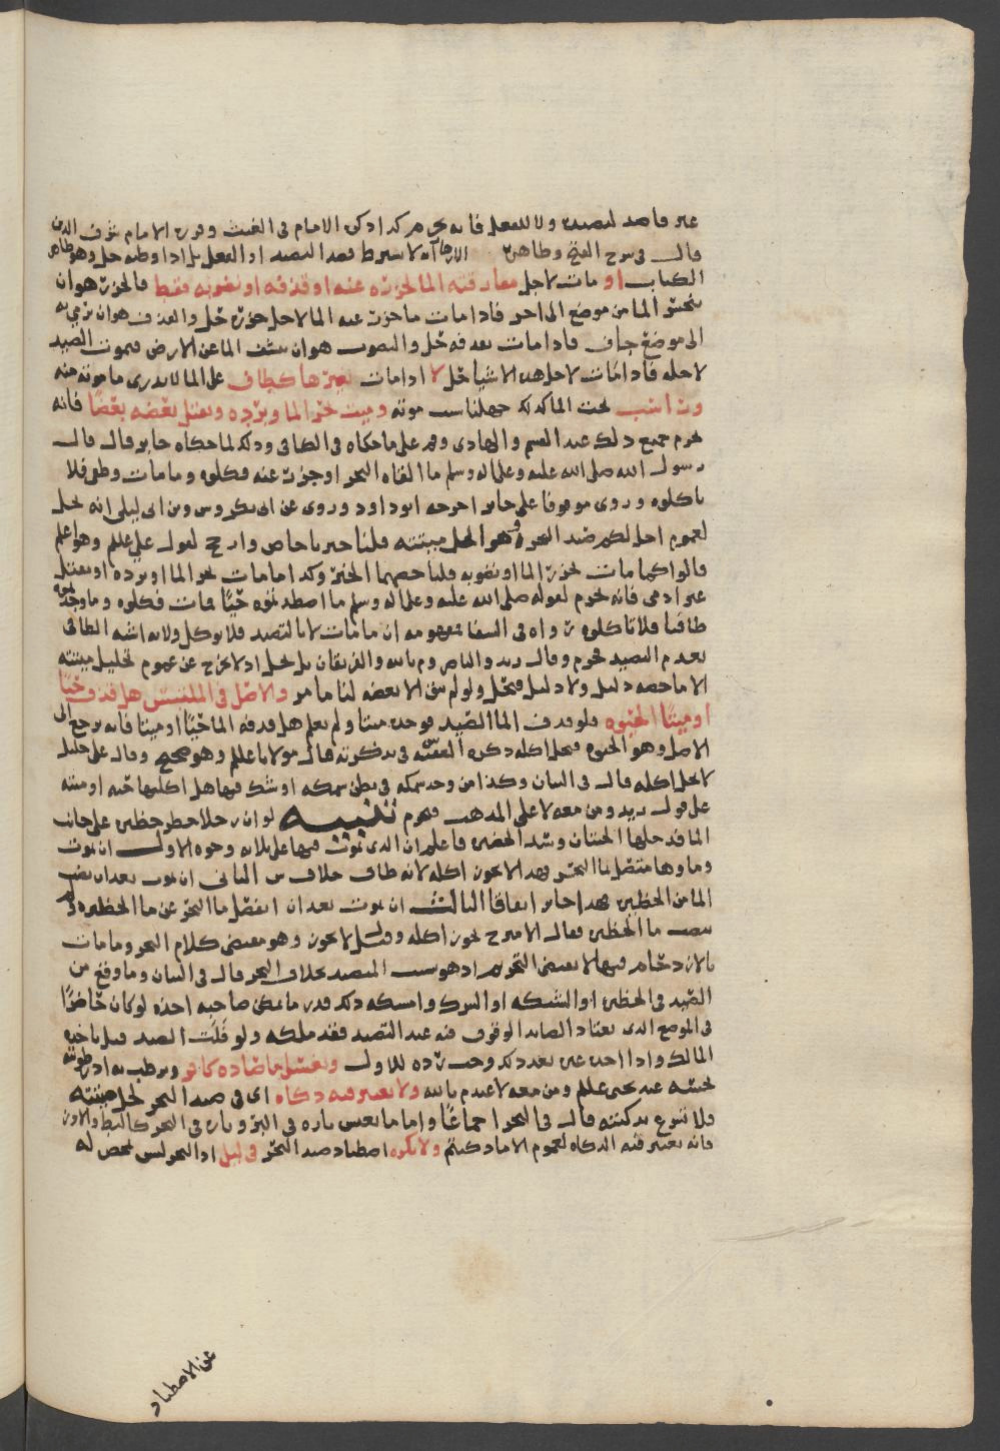 غير قاصد لتصيده ولا للفعل فانه يحرم هكذا ذكره الامام في الغيث وقرره الامام شرف الدين
قال في شرح الفتح وظاهر الازهار انه لا يشترط قصد التصيد او الفعل بل اذا وطئه حل وهو ظاهر
الكتاب او مات لاجل مفارقته الما لجزره عنه او قذفه او نضوبه فقط فالجزر هو ان
ينحسر الما من موضع الى اخر فاذا مات ما جزر عنه الما لاجل جزره حل والقذف هو ان يرمي به
الى موضع جاف فاذا مات بعد قذفه حل والنضوب هو ان ينشف الما عن الارض فيموت الصيد
لاجله فاذا مات لاجل هذه الاشيا حل لا اذا مات بغيرها كطاف على الما لا يدرى ما موته منه
وراسب تحت الما كذلك جهلنا سبب موته وميت بحر الما وبرده وبقتل بعضه بعضا فانه
يحرم جميع ذلك عند القسم والهادي وم على ما حكاه في الكافي وذلك لما حكاه جابر قال قال
رسول الله صلى الله عليه وعلى اله وسلم ما القاه البحر او جزر عنه فكلوه وما مات وطفى فلا
تاكلوه وروي موقوفا على جابر اخرجه ابو داود وروي عن ابي بكر وس وبن ابي ليلى انه يحل
لعموم احل لكم صيد البحر وهو الحل ميتته قلنا خبرنا خاص وارجح لقول علي علم وهو اعلم
قالوا كما مات بجزر الما او نضوبه قلنا خصهما الخبر وكذا ما مات بحر الما او برده او بقتل
غير ادمي فانه يحرم لقوله صلى الله عليه وعلى اله وسلم ما اصطدتموه حيا فمات فكلوه وما وجدتموه
طافيا فلا تاكلوه رواه في الشفا مفهومه ان ما مات لا بالتصيد فلا يوكل ولانه اشبه الطافي
بعدم التصيد فحرم وقال زيد والناصر وم بالله والفريقان بل يحل اذ لا يخرج عن عموم تحليل ميتته
الا ما خصه دليل ولا دليل فيحل ولو لم يبق الا بعضه لنا ما مر والاصل في الملتبس هل قذف حيا
او ميتا الحيوه فلو قذف الما الصيد فوجد ميتا ولم يعلم هل قذفه الما حيا او ميتا فانه يرجع الى
الاصل وهو الحيوه فيحل اكله ذكره الفقيه ف في تذكرته قال مولانا علم وهو صحيح وقال علي خليل
لا يحل اكله قال في البيان وكذا من وجد سمكه في بطن سمكه او شك فيها هل اكلتها حيه او ميته
على قول زيد ومن معه لا على المذهب فيحرم تنبيه لو ان رجلا حظر حظيره على جانب
الما فدخلها الحيتان وسد الحظيره فاعلم ان الذي يموت فيها على ثلاثه وجوه الاول ان يموت
وماوها متصل بما البحر فهذا لا يجوز اكله لانه طاف خلاف س الثاني ان يموت بعد ان نضب
الما من الحظيره فهذا جائز اتفاقا الثالث ان يموت بعد ان انفصل ما البحر عن ما الحظيره ولم
ينضب ما الحظيره فقال الامير ح يجوز اكله وقيل لا يجوز وهو مقتضى كلام البحر وما مات
بالازدحام فيها لا يقتضي التحريم اذ هو سبب التصيد بخلاف البحر قال في البيان وما وقع من
الصيد في الحظيره او الشبكه او الشرك وامسكه ذلك قدر ما يمكن صاحبه اخذه لو كان حاضرا
في الموضع الذي يعتاد الصايد الوقوف فيه عند التصيد فقد ملكه ولو فلت الصيد قبل ياخذه
المالك واذا اخذه غيره بعد ذلك وجب رده للاول ويغسل ما صاده كافر ويرطب به اذ رطوبته
نجسه عند يحيى علم ومن معه لا عند م بالله ولا يعتبر فيه ذكاه اي في صيد البحر لحل ميتته
فلا تنوع تذكيته قال في البحر اجماعا واما ما يعيش تاره في البر وتاره في البحر كالبط والاوز
فانه يعتبر فيه الذكاه لعموم الا ما ذكيتم ولا يكره اصطياد صيد البحر في ليل اذ البحر ليس بمحصل له
عن الاصطياد